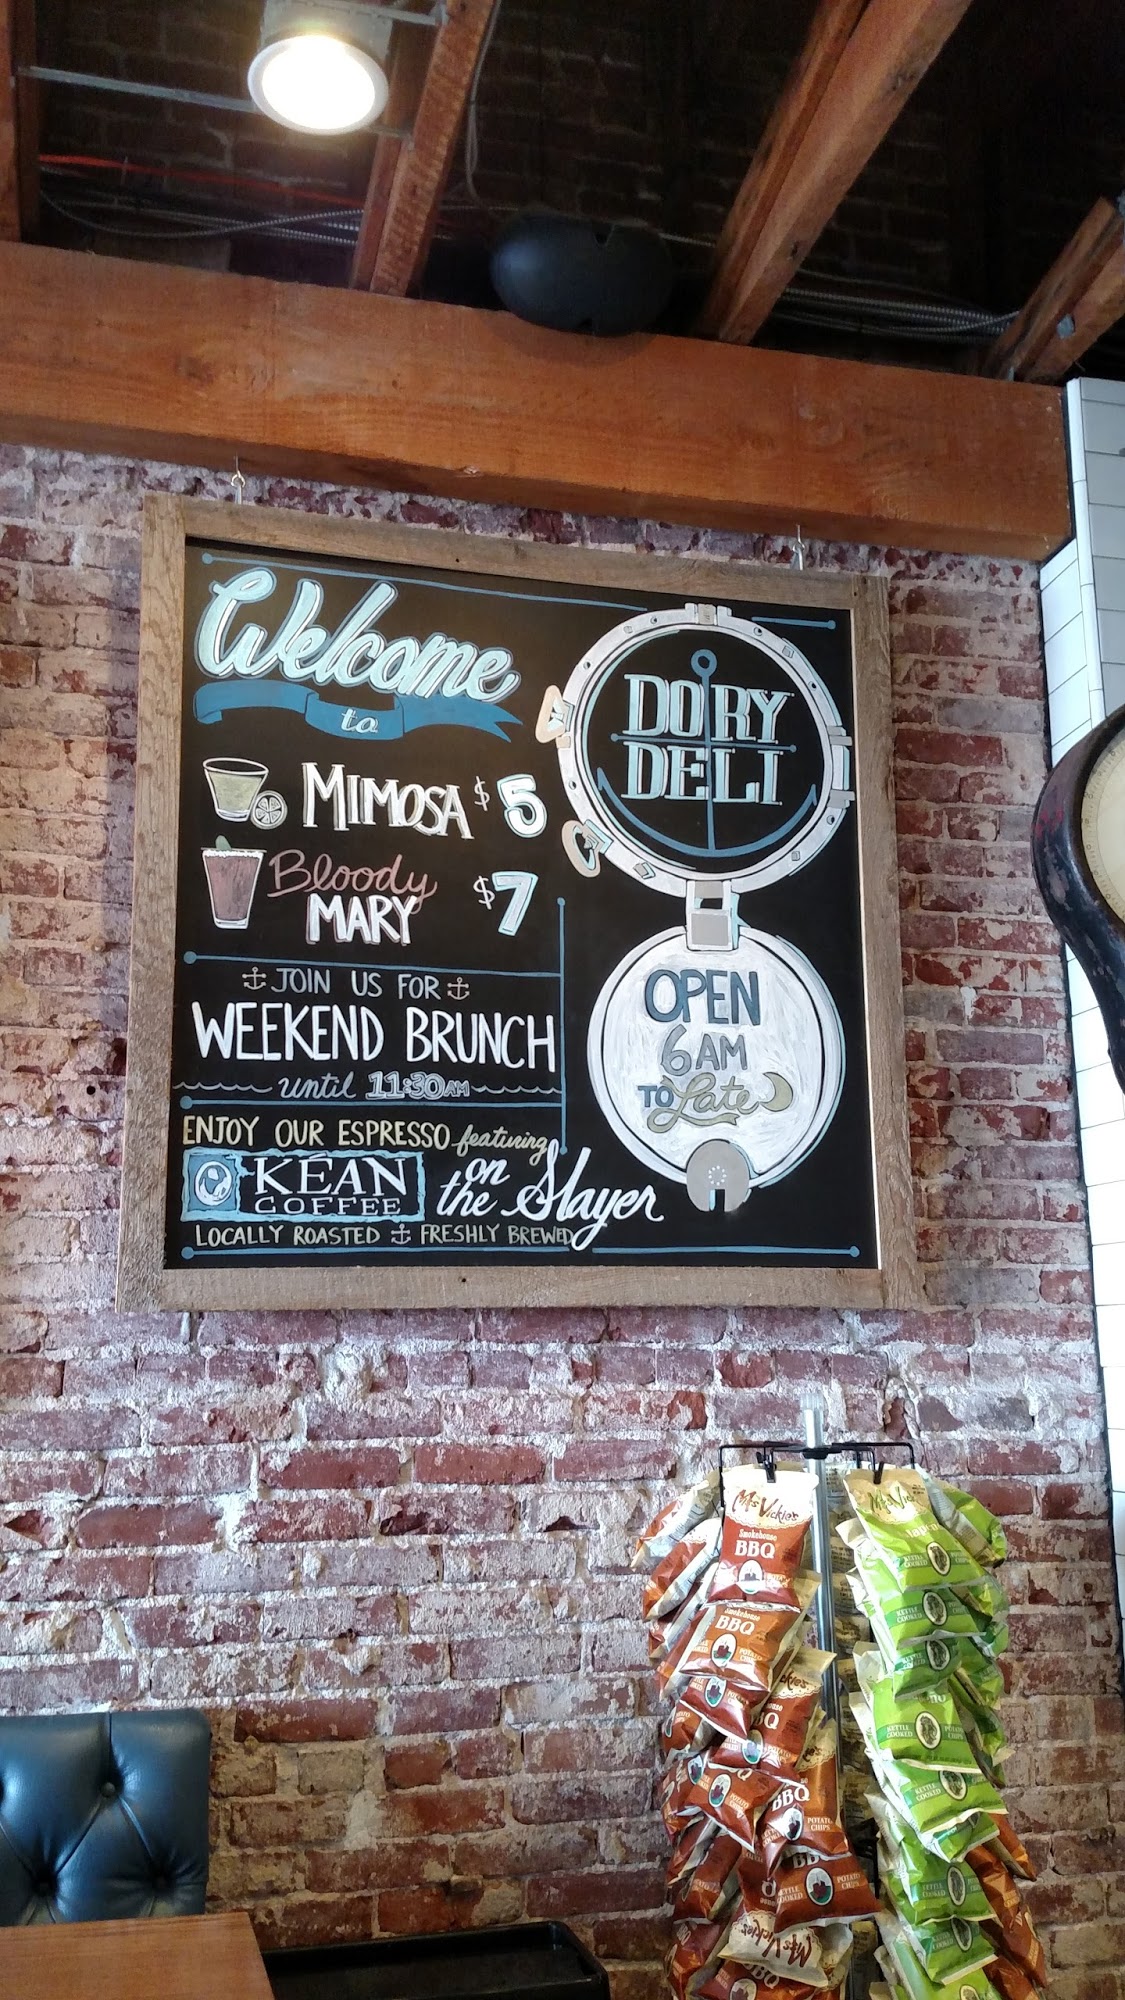 Welcome
to
DORY
DELI
MIMOSA $5
Bloody
MARY $7
JOIN US FOR
WEEKEND BRUNCH
until 11:30AM
OPEN
6AM
TO Late
ENJOY OUR ESPRESSO featuring
KÉAN
COFFEE
on
the Slayer
LOCALLY ROASTED FRESHLY BREWED
Mrs Vickie's
Smokehouse
BBQ
Smokehouse
BBQ
KETTLE
COOKED
POTATO
CHIPS
BBQ
POTATO
CHIPS
KETTLE
COOKED
POTATO
CHIPS
Mrs Vickie's